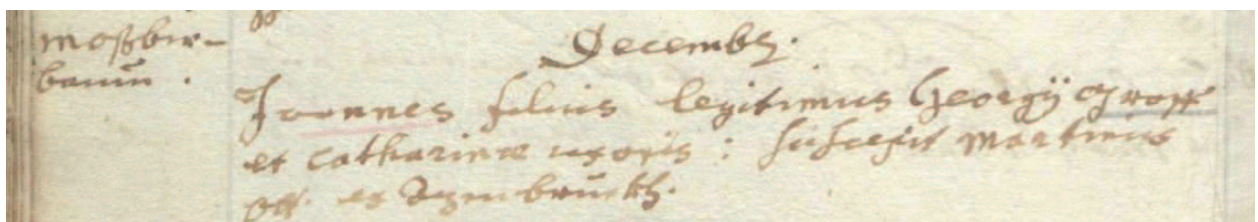 Moßbir-
baum.
Decemb.
Joannes filius legitimus Georgÿ Groff
et Catharinæ uxoris : suscepit Martinus
ex